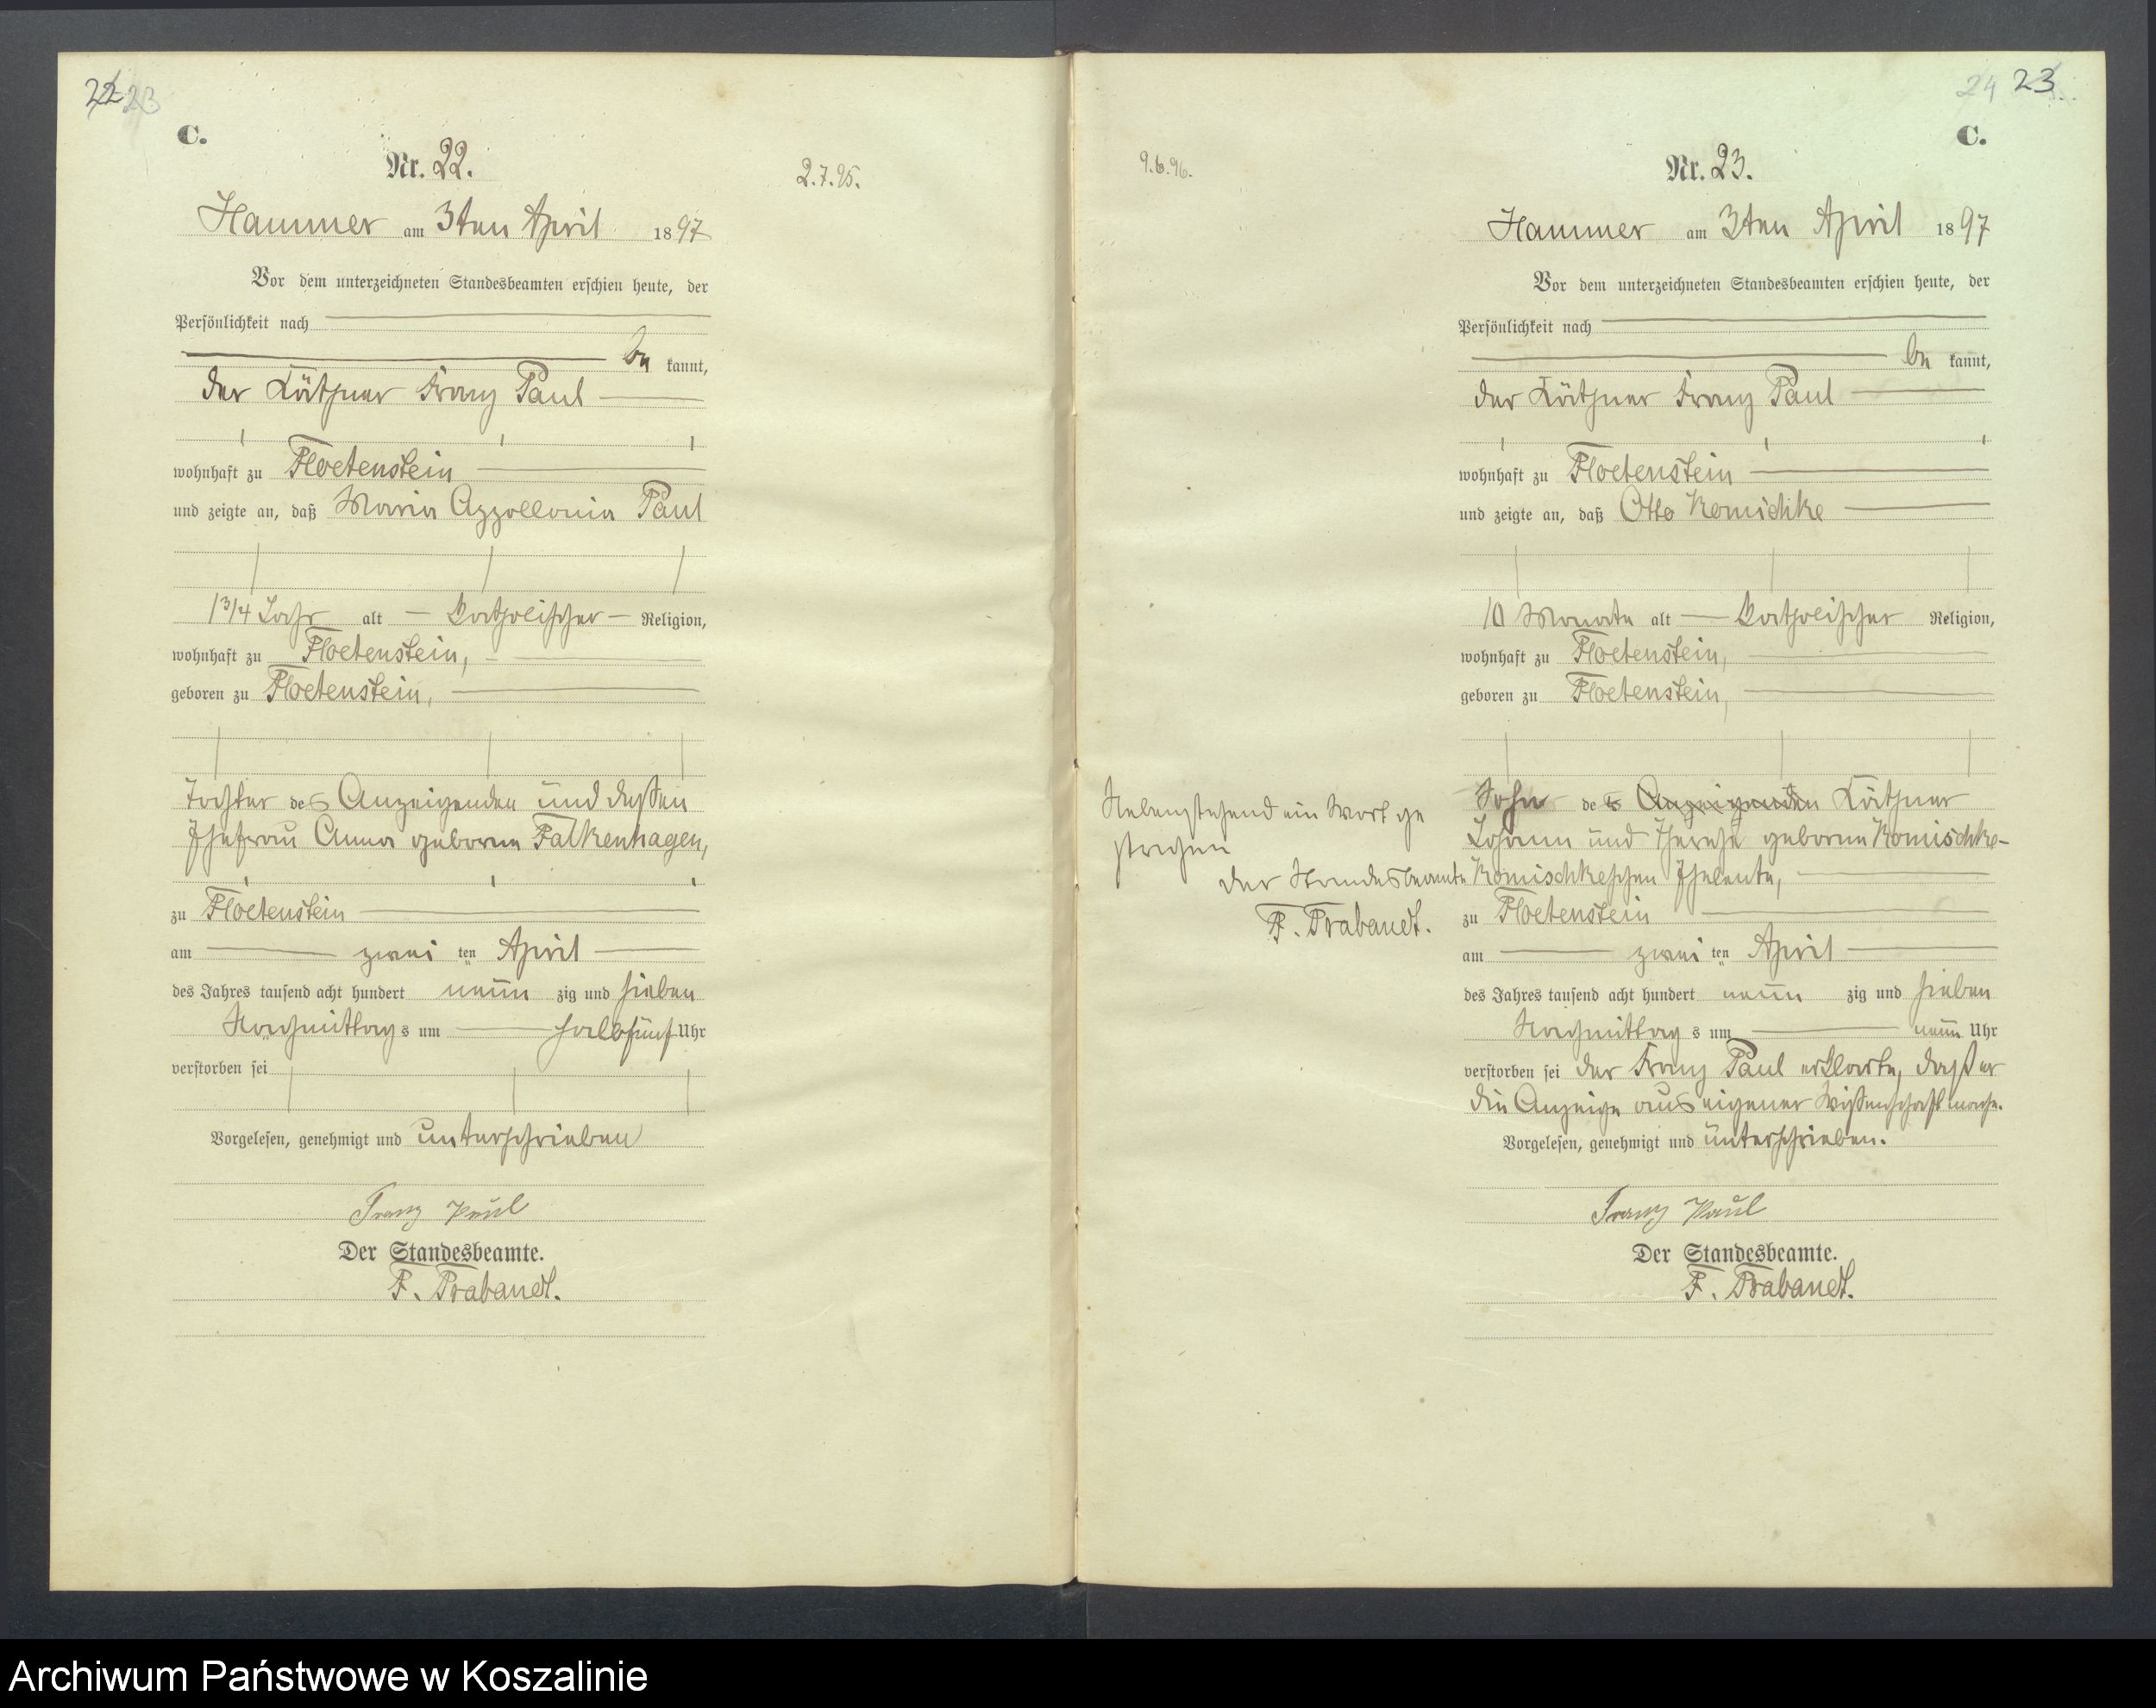 22 23
C.
Nr. 22.
2.7.95.
Hammer am 3ten April 1897
Vor dem unterzeichneten Standesbeamten erschien heute, der
Persönlichkeit nach
be kannt,
der Käthner Franz Paul
wohnhaft zu Floetenstein
und zeigte an, daß Maria Appollonia Paul
1 3/4 Jahr alt — katholischer — Religion,
wohnhaft zu Floetenstein,
geboren zu Floetenstein,
Tochter des Anzeigenden und dessen
Ehefrau Anna geborne Falkenhagen,
zu Floetenstein
am zwei ten April
des Jahres tausend acht hundert neun zig und sieben
Nachmittag s um halb fünf Uhr
verstorben sei
Vorgelesen, genehmigt und unterschrieben
Franz Paul
Der Standesbeamte.
F. Trabandt.
24 23
C.
9.6.96.
Nr. 23.
Hammer am 3ten April 1897
Vor dem unterzeichneten Standesbeamten erschien heute, der
Persönlichkeit nach
be kannt,
der Käthner Franz Paul
wohnhaft zu Floetenstein
und zeigte an, daß Otto Komischke
10 Monate alt — katholischer Religion,
wohnhaft zu Floetenstein,
geboren zu Floetenstein,
Sohn des Anzeigenden Käthner
Johann und Therese geborne Komischke-
Komischkeschen Eheleute,
zu Floetenstein
am zwei ten April
des Jahres tausend acht hundert neun zig und sieben
Nachmittag s um neun Uhr
verstorben sei der Franz Paul erklarte, daß er
die Anzeige aus eigener Wissenschaft mache.
Vorgelesen, genehmigt und unterschrieben.
Franz Paul
Der Standesbeamte.
F. Trabandt.
Nebenstehend ein Wort ge
strichen
der Standesbeamte
F. Trabandt.
Archiwum Państwowe w Koszalinie